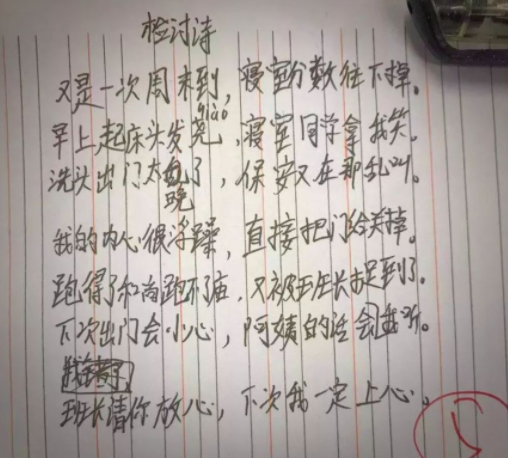 检讨诗
又是一次周末到，寝室分数往下掉。
qiào
早上起床头发尧，寝室同学拿我笑。
洗头出门太了，保安又在那乱叫。
晚
我的内心很浮躁，直接把门给关掉。
跑得了和尚跑不了庙，又被班长捉到了。
下次出门会小心，阿姨的话会我听。
班长请你放心，下次我一定上心。